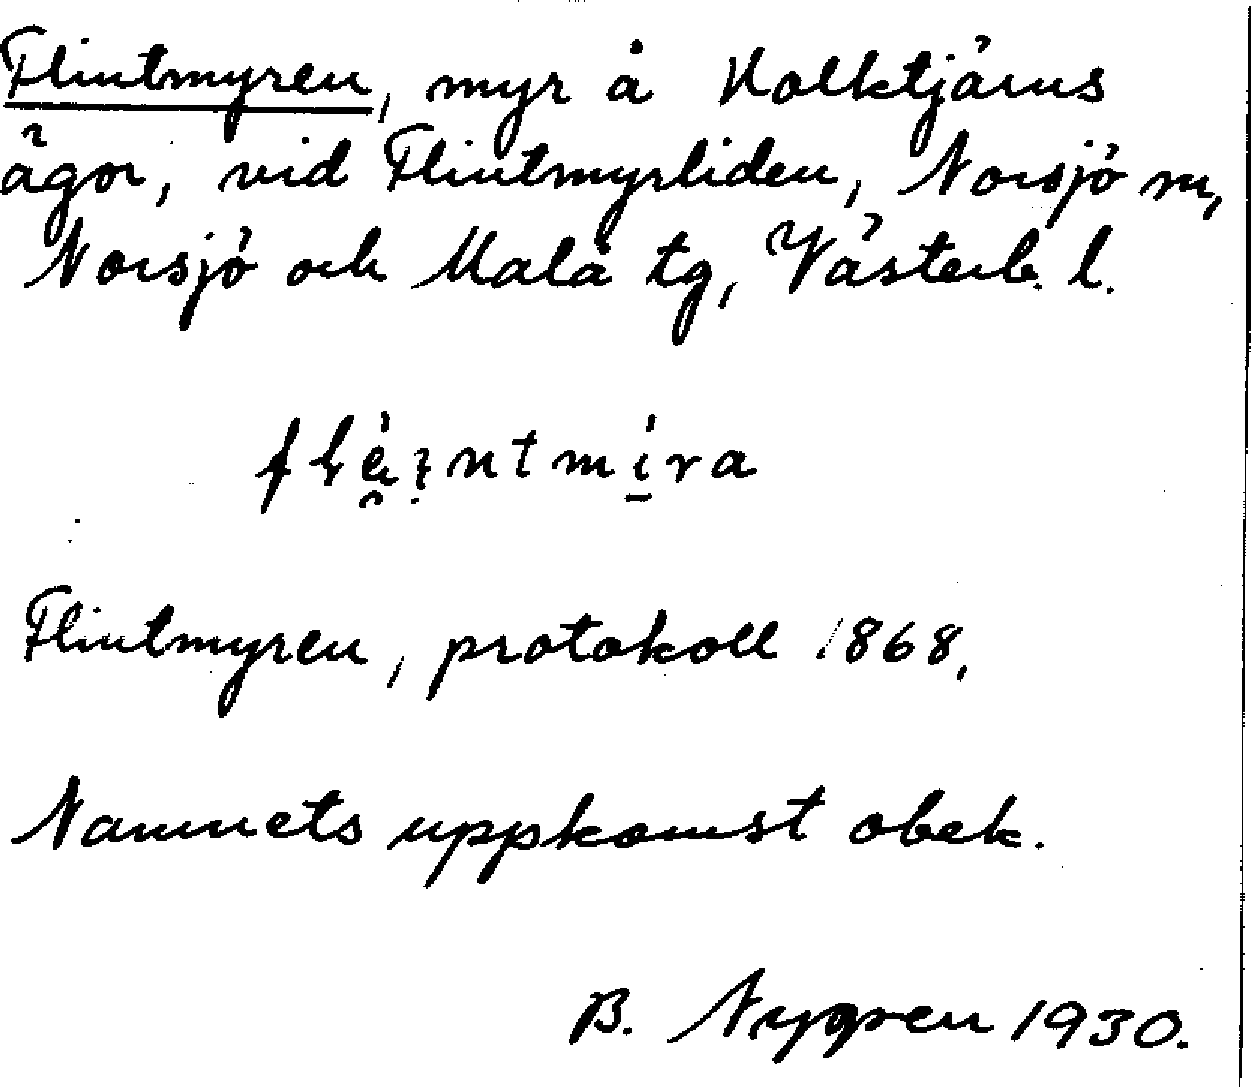 Flintmyren, myr å Kolktjärns
ägor, vid Flintmyrliden, Norsjö sn,
Norsjö och Malå tg, Västerb. l.
Flintmyren, protokoll 1868.
Namnets uppkomst obek.
B. Nygren 1930.